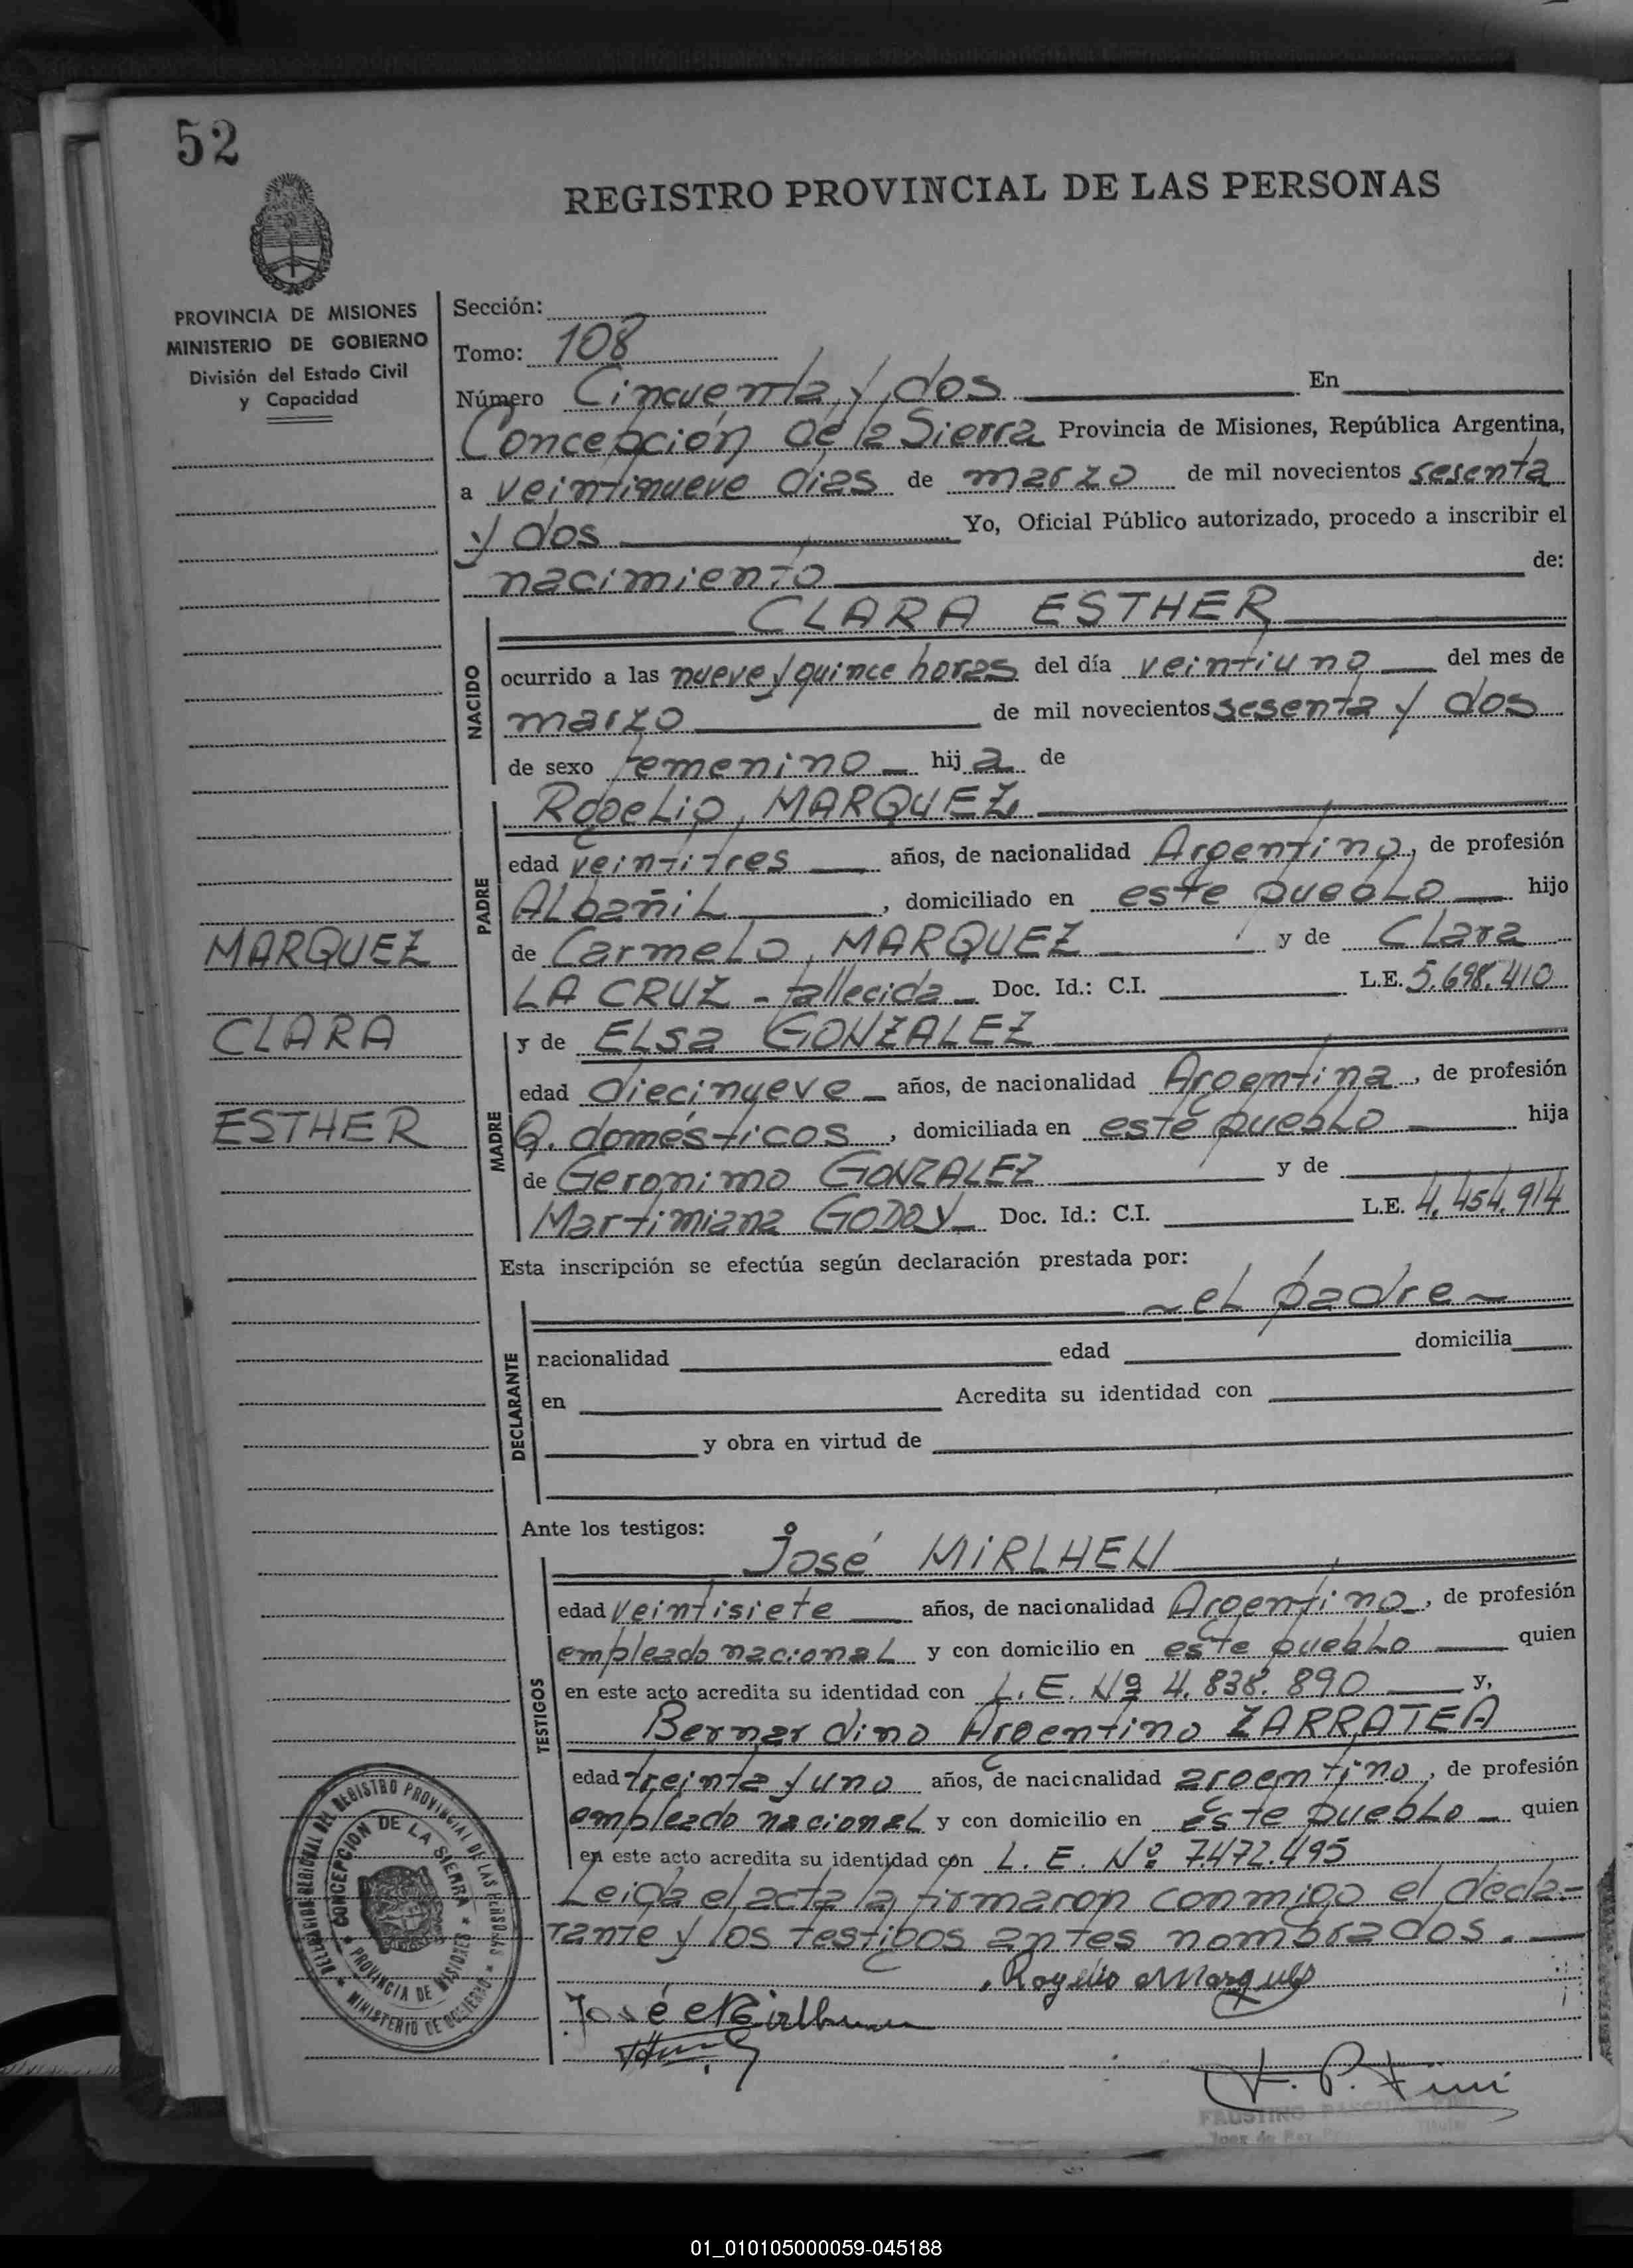 52
REGISTRO PROVINCIAL DE LAS PERSONAS
PROVINCIA DE MISIONES
MINISTERIO DE GOBIERNO
División del Estado Civil
y Capacidad
Sección:
Tomo: 108
Número Cincuenta y dos En
Concepción de la Sierra Provincia de Misiones, República Argentina,
a veintinueve días de marzo de mil novecientos sesenta
y dos Yo, Oficial Público autorizado, procedo a inscribir el
nacimiento de:
CLARA ESTHER
NACIDO
ocurrido a las nueve y quince horas del día veintiuno del mes de
marzo de mil novecientos sesenta y dos
de sexo femenino hija de
Rogelio, MARQUEZ
PADRE
edad veintitres años, de nacionalidad Argentino, de profesión
Albañil, domiciliado en este pueblo hijo
de Carmelo, MARQUEZ y de Clara
LA CRUZ - fallecida - Doc. Id.: C.I. L.E. 5.698.410
MARQUEZ
CLARA
ESTHER
y de Elsa GONZALEZ
MADRE
edad diecinueve años, de nacionalidad Argentina, de profesión
Q. domésticos, domiciliada en este pueblo hija
de Geronimo GONZALEZ y de
Martimiana GODOY Doc. Id.: C.I. L.E. 4.454.914
Esta inscripción se efectúa según declaración prestada por:
~ el padre ~
DECLARANTE
nacionalidad edad domicilia
en Acredita su identidad con
y obra en virtud de
Ante los testigos:
José MiRLHEN
TESTIGOS
edad veintisiete años, de nacionalidad Argentino, de profesión
empleado nacional y con domicilio en este pueblo quien
en este acto acredita su identidad con L. E. Nº 4.838.890 y,
Bernardino Argentino ZARRATEA
edad treinta y uno años, de nacionalidad argentino, de profesión
empleado nacional y con domicilio en este pueblo quien
en este acto acredita su identidad con L. E. Nº 7.472.495
Leida el acta la firmaron conmigo el decla-
rante y los testigos antes nombrados.
Rogelio Marques
José Mirlhen
F. P. Fini
FAUSTINO PASCUAL
Juez de Paz
Titular
DELEGACION REGIONAL DEL REGISTRO PROVINCIAL DE LAS PERSONAS
MINISTERIO DE GOBIERNO
CONCEPCION DE LA SIERRA
PROVINCIA DE MISIONES
01_010105000059-045188